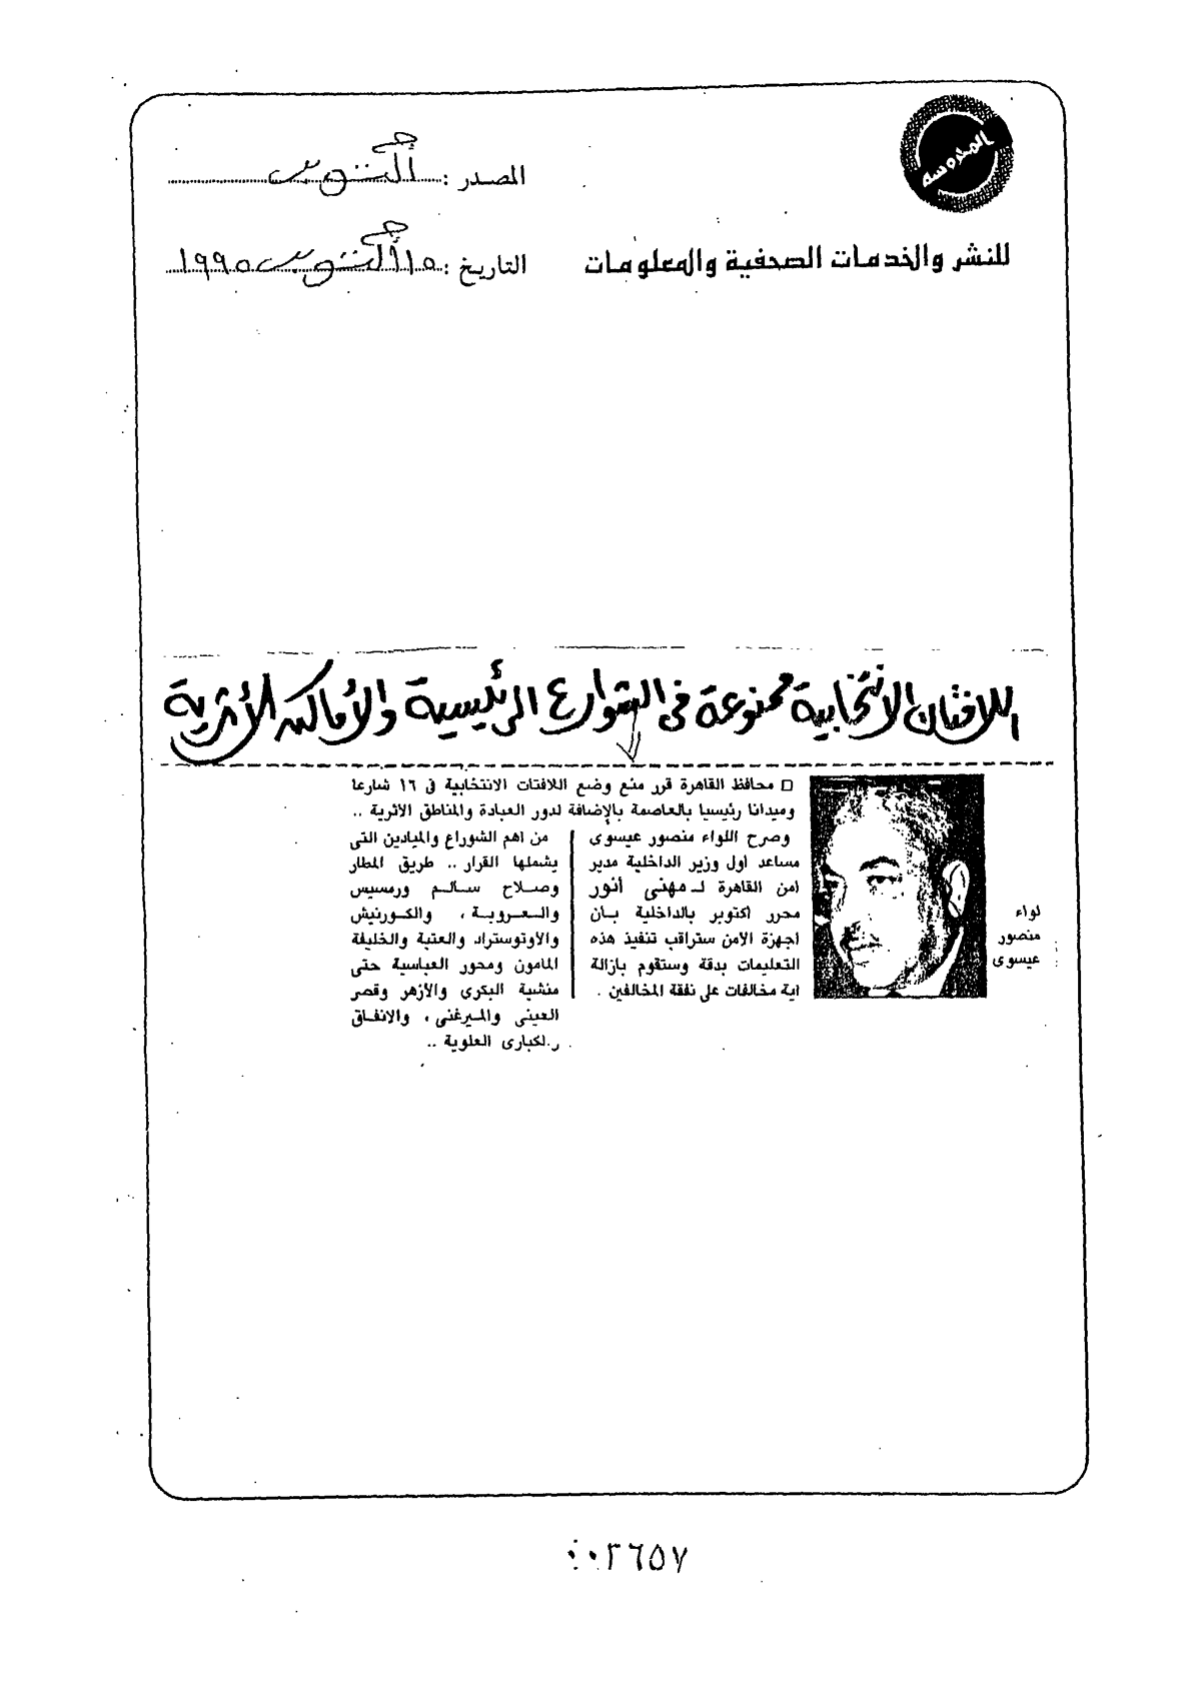 المحروسة
للنشر والخدمات الصحفية والمعلومات
المصدر : أكتوبر
التاريخ : ١٥ أكتوبر ١٩٩٥
اللافتات الانتخابية ممنوعة فى الشوارع الرئيسية والأماكن الأثرية
محافظ القاهرة قرر منع وضع اللافتات الانتخابية فى ١٦ شارعا
وميدانا رئيسيا بالعاصمة بالإضافة لدور العبادة والمناطق الاثرية ..
وصرح اللواء منصور عيسوى
مساعد اول وزير الداخلية مدير
امن القاهرة لـ مهنى أنور
محرر اكتوبر بالداخلية بان
اجهزة الامن ستراقب تنفيذ هذه
التعليمات بدقة وستقوم بازالة
اية مخالفات على نفقة المخالفين .
من اهم الشوراع والميادين التى
يشملها القرار .. طريق المطار
وصلاح سالم ورمسيس
والعروبة ، والكورنيش
والاوتوستراد والعتبة والخليفة
المامون ومحور العباسية حتى
منشية البكرى والأزهر وقصر
العينى والميرغنى ، والانفاق
ر.لكبارى العلوية ..
لواء
منصور
عيسوى
٠٠٢٦٥٧